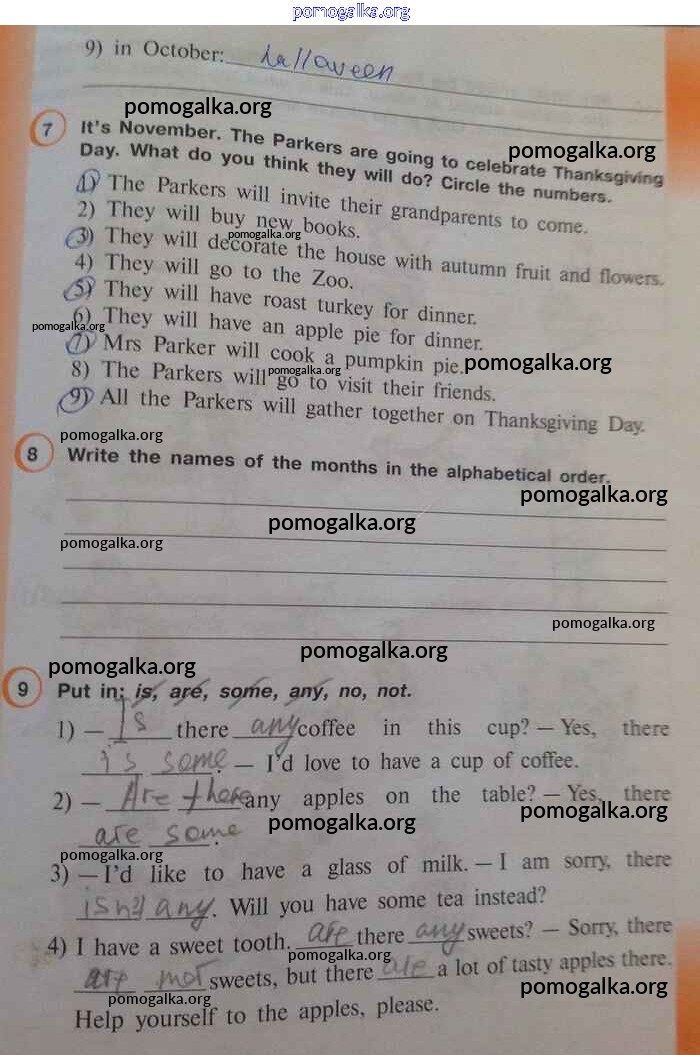 pomogalka.org
9) in October: halloveen
pomogalka.org
7 It's November. The Parkers are going to celebrate Thanksgiving
pomogalka.org
Day. What do you think they will do? Circle the numbers.
1) The Parkers will invite their grandparents to come.
2) They will buy new books.
pomogalka.org
3) They will decorate the house with autumn fruit and flowers.
4) They will go to the Zoo.
5) They will have roast turkey for dinner.
pomogalka.org
6) They will have an apple pie for dinner.
7) Mrs Parker will cook a pumpkin pie.
pomogalka.org
pomogalka.org
8) The Parkers will go to visit their friends.
9) All the Parkers will gather together on Thanksgiving Day.
pomogalka.org
8 Write the names of the months in the alphabetical order.
pomogalka.org
pomogalka.org
pomogalka.org
pomogalka.org
pomogalka.org
pomogalka.org
9 Put in: is, are, some, any, no, not.
1) — Is there any coffee in this cup? — Yes, there
is some. — I'd love to have a cup of coffee.
2) — Are there any apples on the table? — Yes, there
pomogalka.org
pomogalka.org
are some.
pomogalka.org
3) — I'd like to have a glass of milk. — I am sorry, there
isn't any. Will you have some tea instead?
4) I have a sweet tooth. are there any sweets? — Sorry, there
pomogalka.org
are not sweets, but there are a lot of tasty apples there.
pomogalka.org
pomogalka.org
Help yourself to the apples, please.